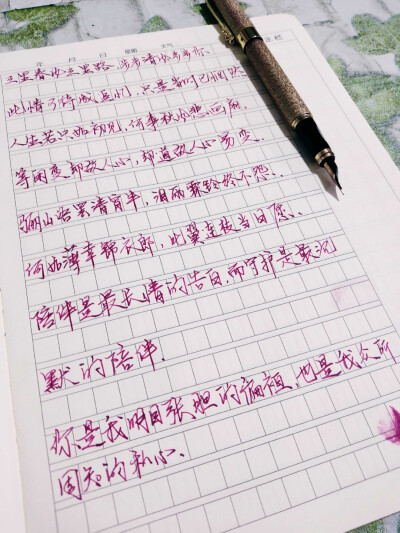 年 月 日 星期 天气
三里春 三里路 步步清 步步你.
此情可待成追忆,只是当时已惘然.
人生若只如初见,何事秋风悲画扇.
等闲变却故人心,却道故人心易变.
骊山语罢清宵半,泪雨霖铃终不怨..
何如薄幸锦衣郎,比翼连枝当日愿..
陪伴是最长情的告白,而守护是最沉
默的陪伴.
你是我明目张胆的偏袒,也是我众所
周知的私心.